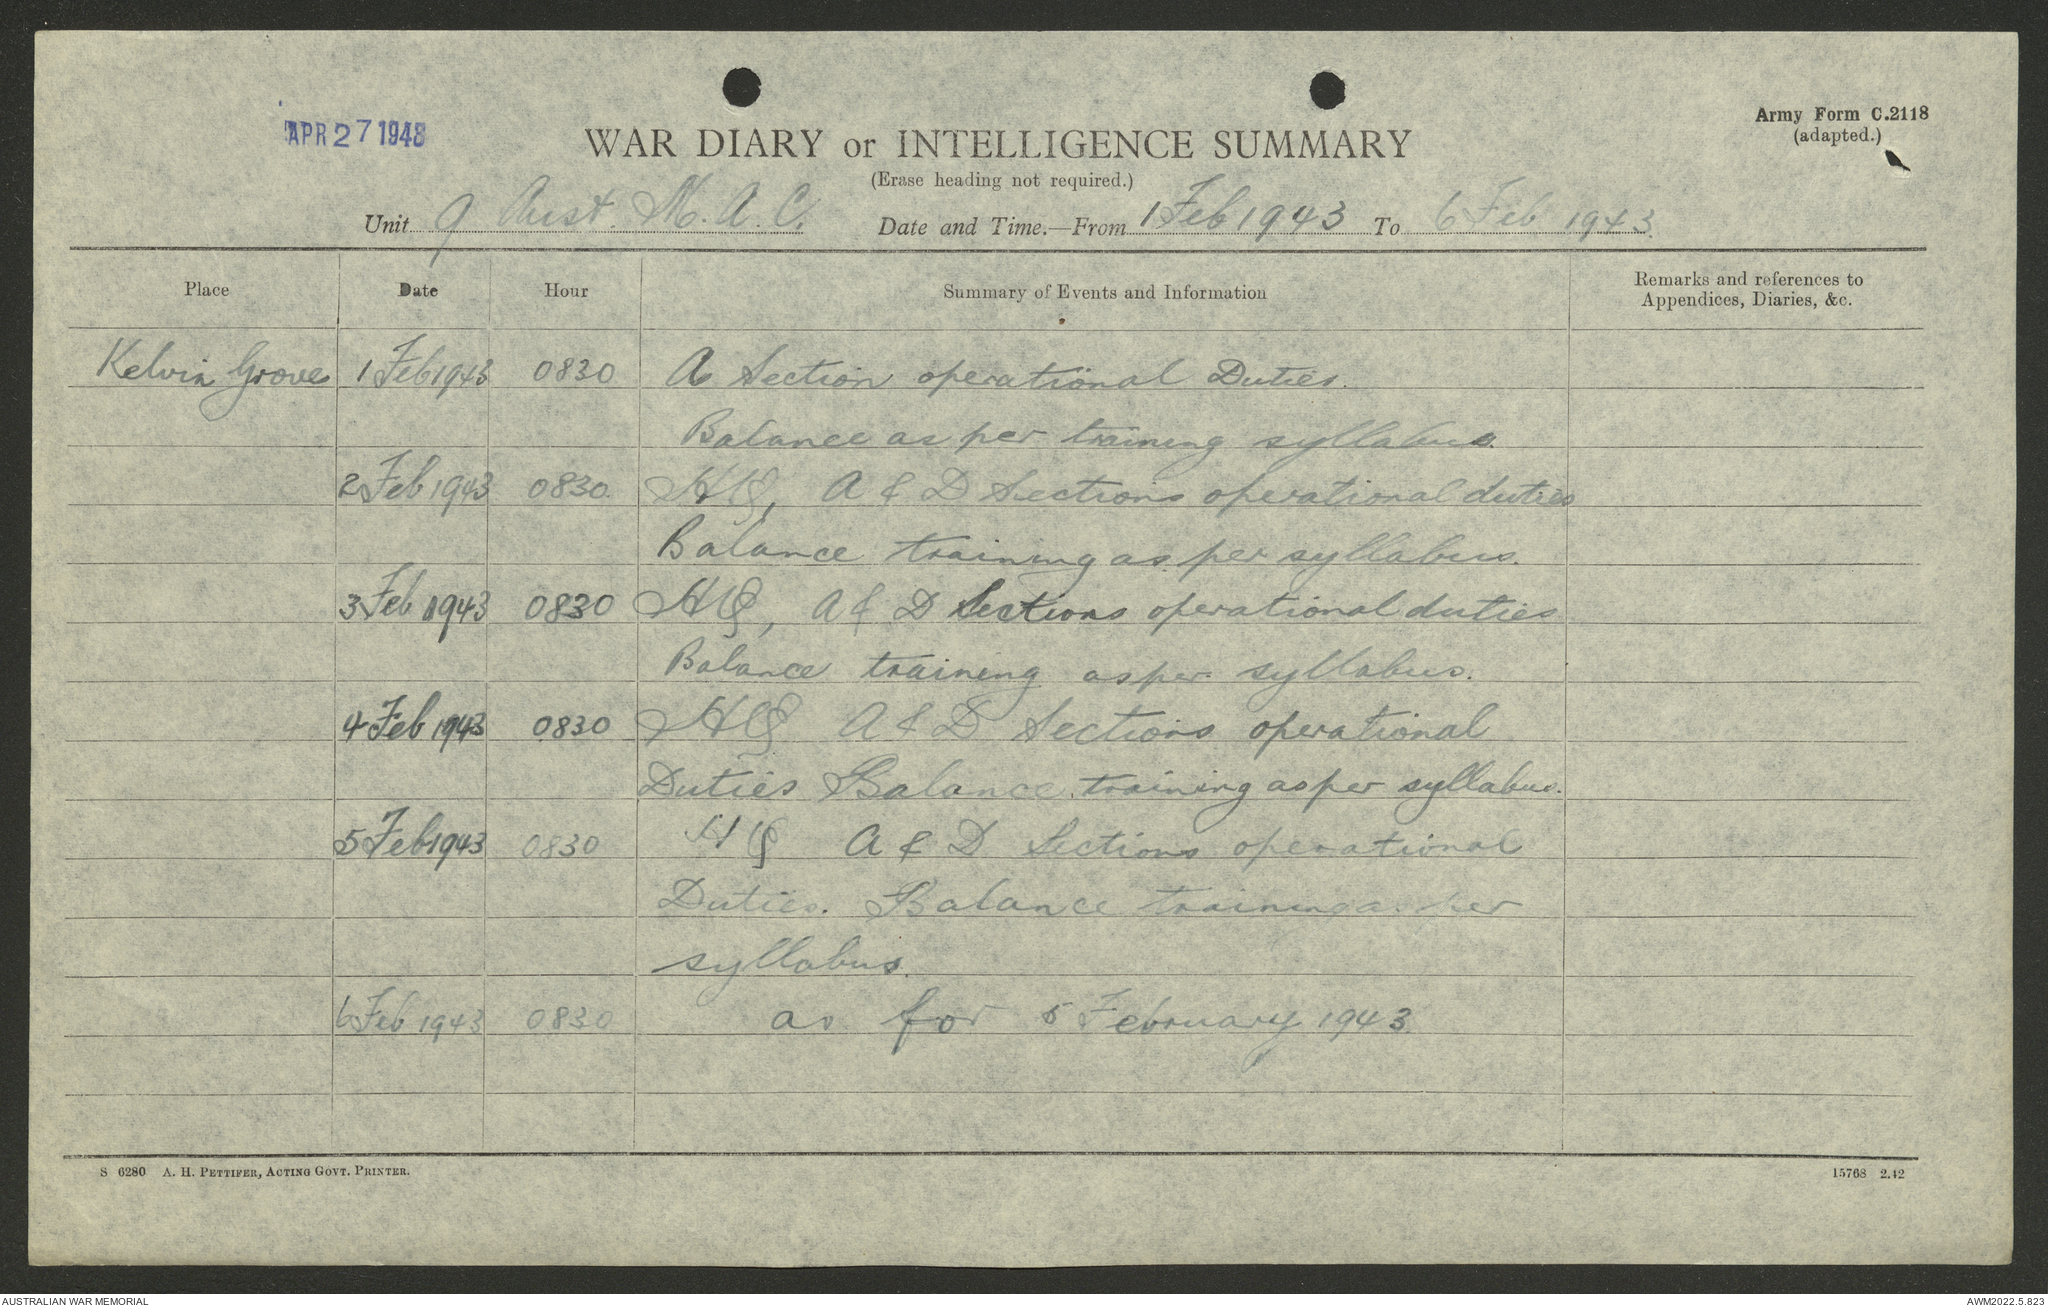 APR 27 1943
Army Form C.2118
(adapted.)
WAR DIARY or INTELLIGENCE SUMMARY
(Erase heading not required.)
Unit 9 Aust. M.A.C. Date and Time.—From 1 Feb 1943 To 6 Feb 1943.
Place Date Hour Summary of Events and Information Remarks and references to
Appendices, Diaries, &c.
Kelvin Grove 1 Feb 1943 0830 A Section operational Duties.
Balance as per training syllabus.
2 Feb 1943 0830. HQ, A & D Sections operational duties
Balance training as per syllabus.
3 Feb 1943 0830 HQ, A & D Sections operational duties
Balance training as per syllabus.
4 Feb 1943 0830 HQ A & D Sections operational
Duties Balance training as per syllabus.
5 Feb 1943 0830 HQ A & D Sections operational
Duties. Balance training as per
syllabus.
6 Feb 1943 0830 as for 5 February 1943
S 6280 A. H. PETTIFER, ACTING GOVT. PRINTER. 15768 2.42
AUSTRALIAN WAR MEMORIAL AWM2022.5.823